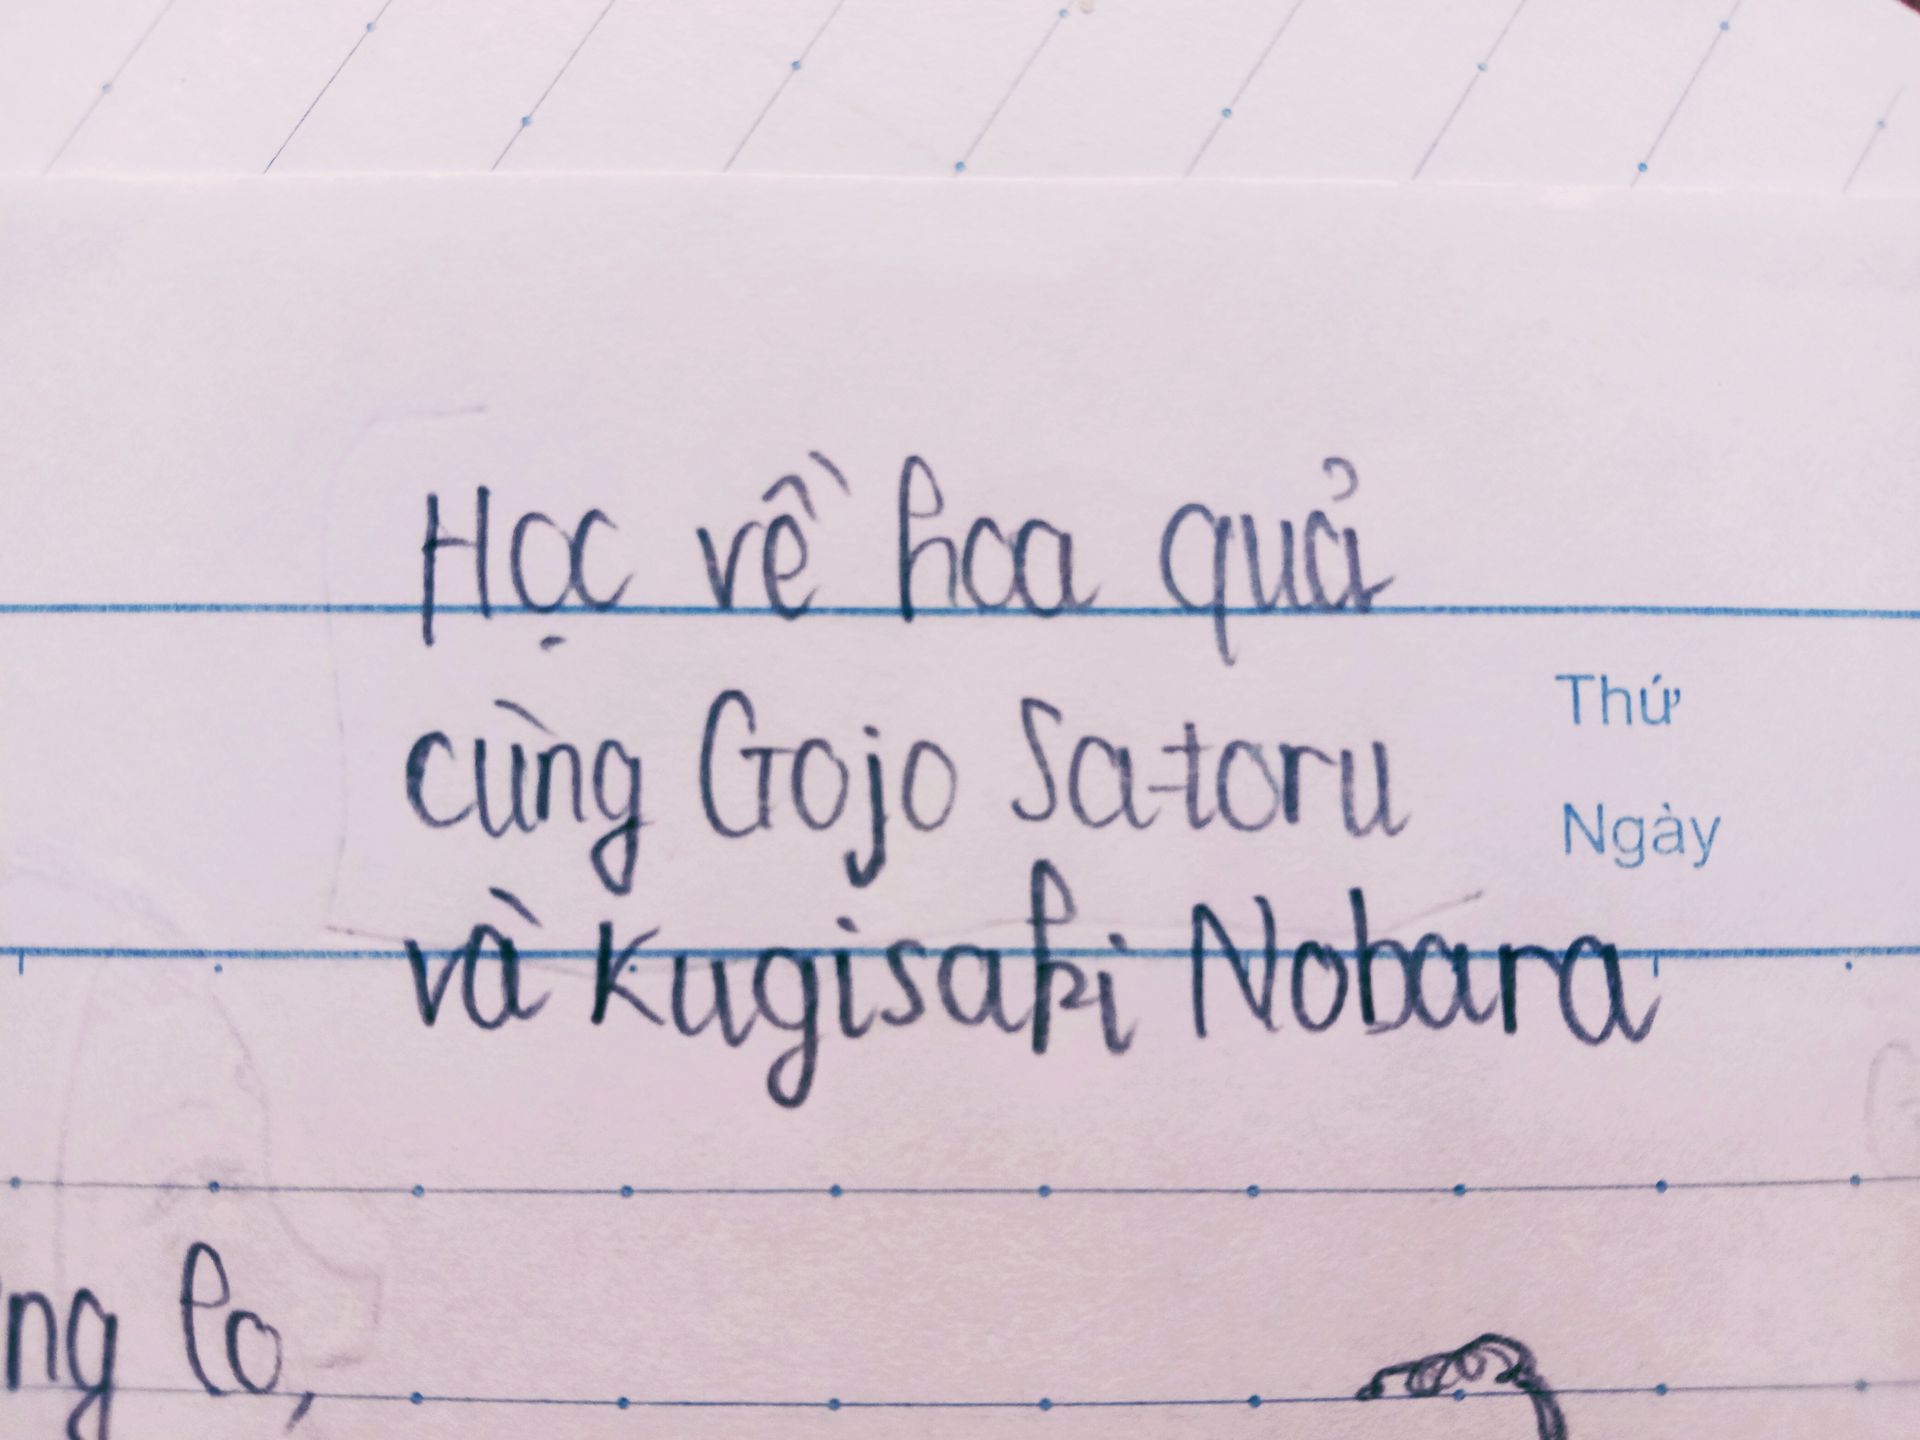 Học về hoa quả
cùng Gojo Sa-toru
Thứ
Ngày
và Kugisaki Nobara
ng lo,